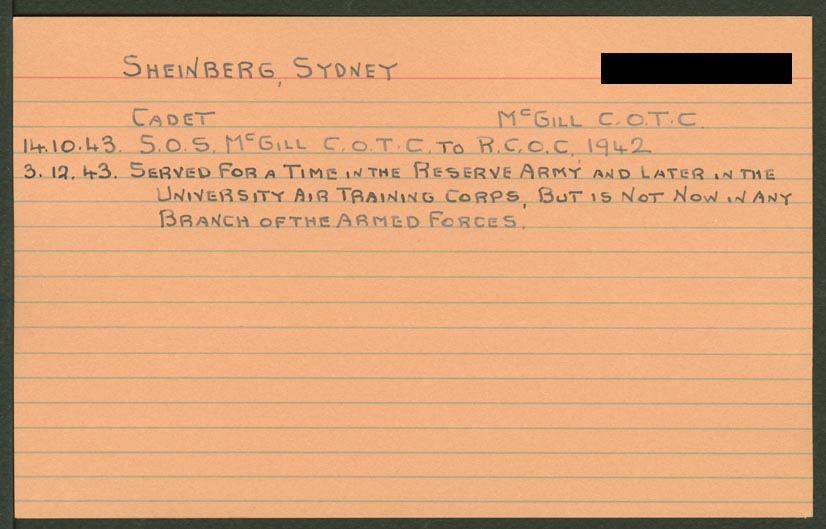 SHEINBERG, SYDNEY
CADET McGILL C.O.T.C.
14.10.43. S.O.S. McGILL C.O.T.C. TO R.C.O.C. 1942
3.12.43. SERVED FOR A TIME IN THE RESERVE ARMY AND LATER IN THE
UNIVERSITY AIR TRAINING CORPS, BUT IS NOT NOW IN ANY
BRANCH OF THE ARMED FORCES.